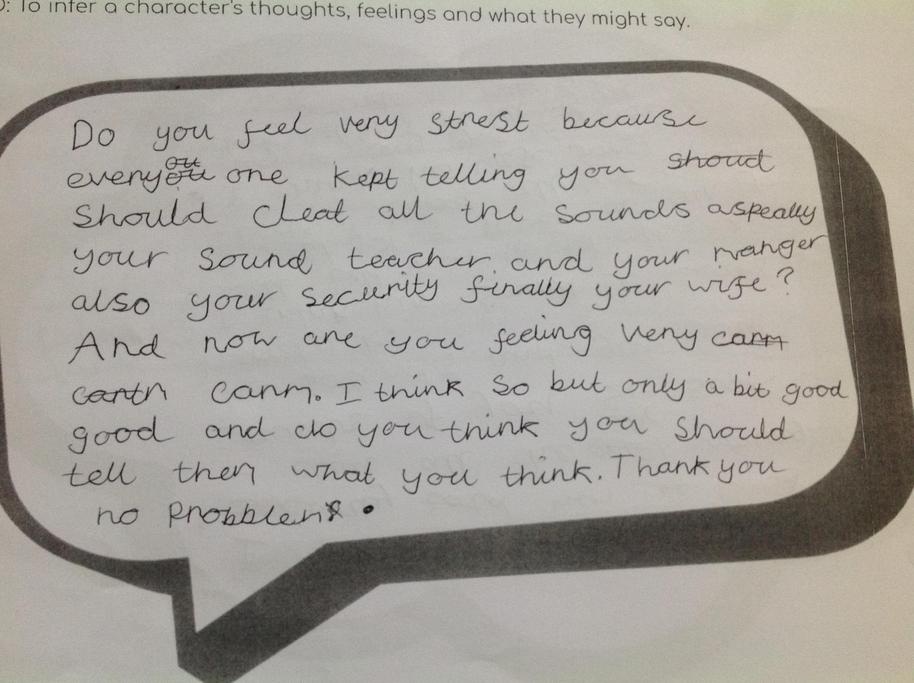 O: To infer a character's thoughts, feelings and what they might say.
Do you feel very strest because
everyone kept telling you shoud
should cleat all the sounds aspeally
your sound teacher and your manger
also your security finally your wife?
And now are you feeling very
canm. I think so but only a bit good
good and do you think you should
tell them what you think. Thank you
no probblem.